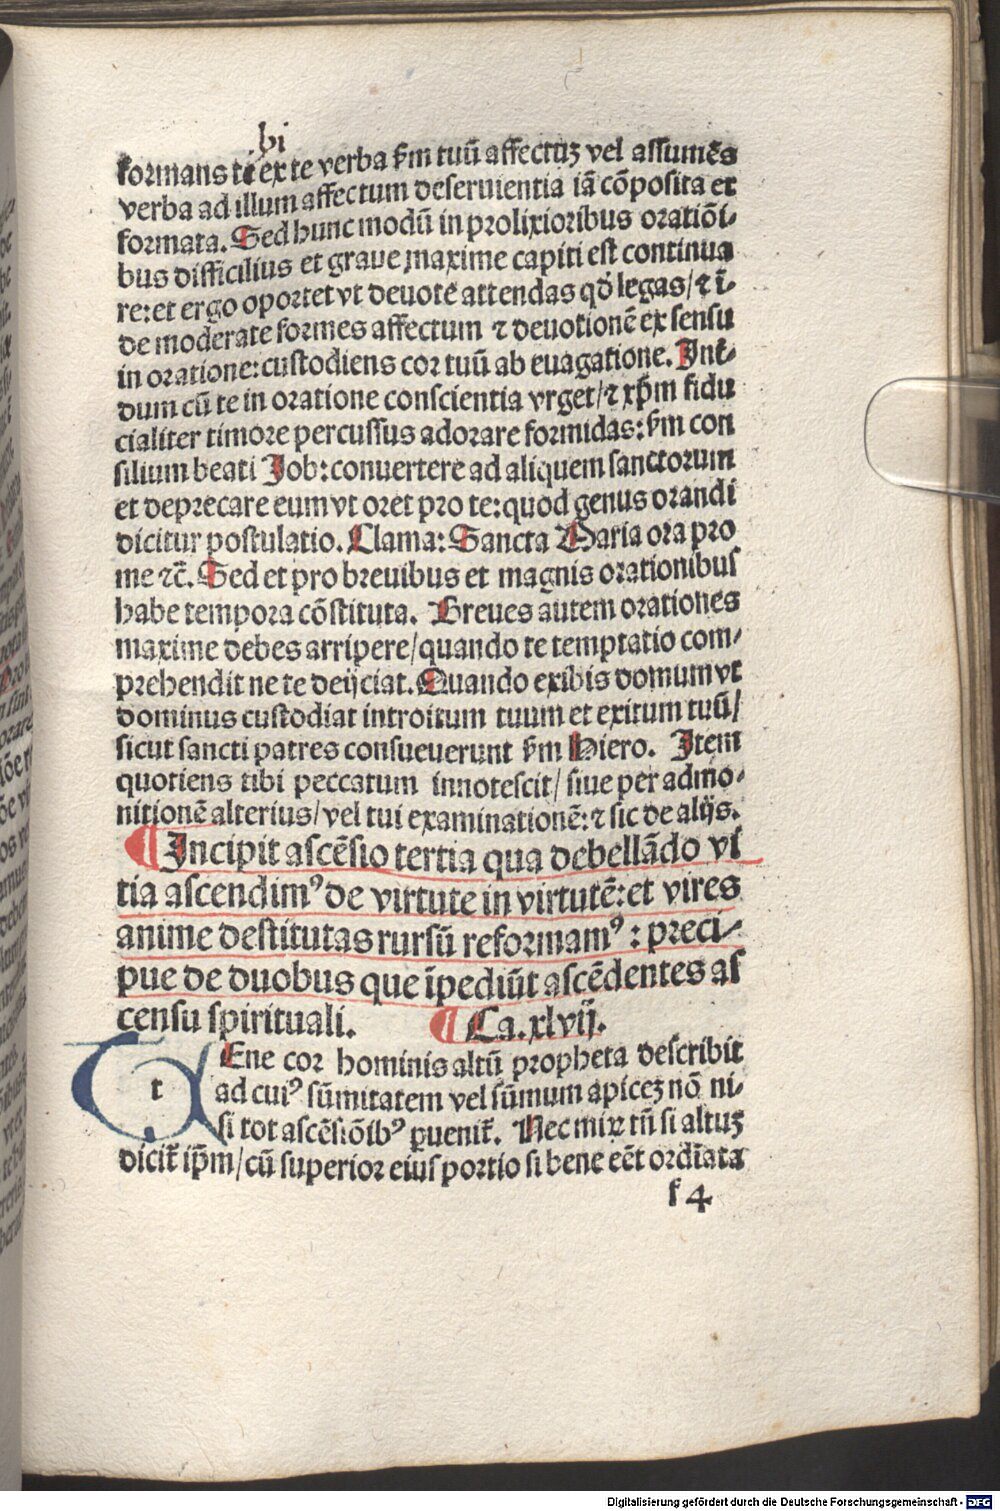 bi
formans ti ex te verba ẜm tuū affectuꝫ vel assumēs
verba ad illum affectum deseruientia iā cōposita et
formata. Sed hunc modū in prolixioribus oratiōi⸗
bus difficilius et graue maxime capiti est continua
re: et ergo oportet vt deuote attendas qð legas/ ⁊ ī⸗
de moderate formes affectum ⁊ deuotionē ex sensu
in oratione: custodiens cor tuū ab euagatione. Int̄⸗
dum cū te in oratione conscientia vrget/ ⁊ xp̄m fidu
cialiter timore percussus adorare formidas: ẜm con
silium beati Job: conuertere ad aliquem sanctorum
et deprecare eum vt oret pro te: quod genus orandi
dicitur postulatio. Clama: Sancta Maria ora pro
me ⁊c̄. Sed et pro breuibus et magnis orationibus
habe tempora cōstituta. Breues autem orationes
maxime debes arripere/ quando te temptatio com⸗
prehendit ne te deijciat. Quando exibis domum vt
dominus custodiat introitum tuum et exitum tuū/
sicut sancti patres consueuerunt ẜm Hiero. Item
quotiens tibi peccatum innotescit/ siue per admo⸗
nitionē alterius/ vel tui examinationē: ⁊ sic de alijs.
¶ Incipit ascēsio tertia qua debellādo vi
tia ascendimꝰ de virtute in virtutē: et vires
anime destitutas rursū reformamꝰ: preci⸗
pue de duobus que īpediūt ascēdentes as
censu spirituali. ¶ Ca. xlvij.
t Ene cor hominis altū propheta describit
ad cuiꝰ sūmitatem vel sūmum apiceꝫ nō ni⸗
si tot ascēsiōibꝰ ꝑuenit̄. Nec mix tn̄ si altuꝫ
dicit̄ ip̄m/ cū superior eius portio si bene eēt ordīata
f 4
Digitalisierung gefördert durch die Deutsche Forschungsgemeinschaft - DFG